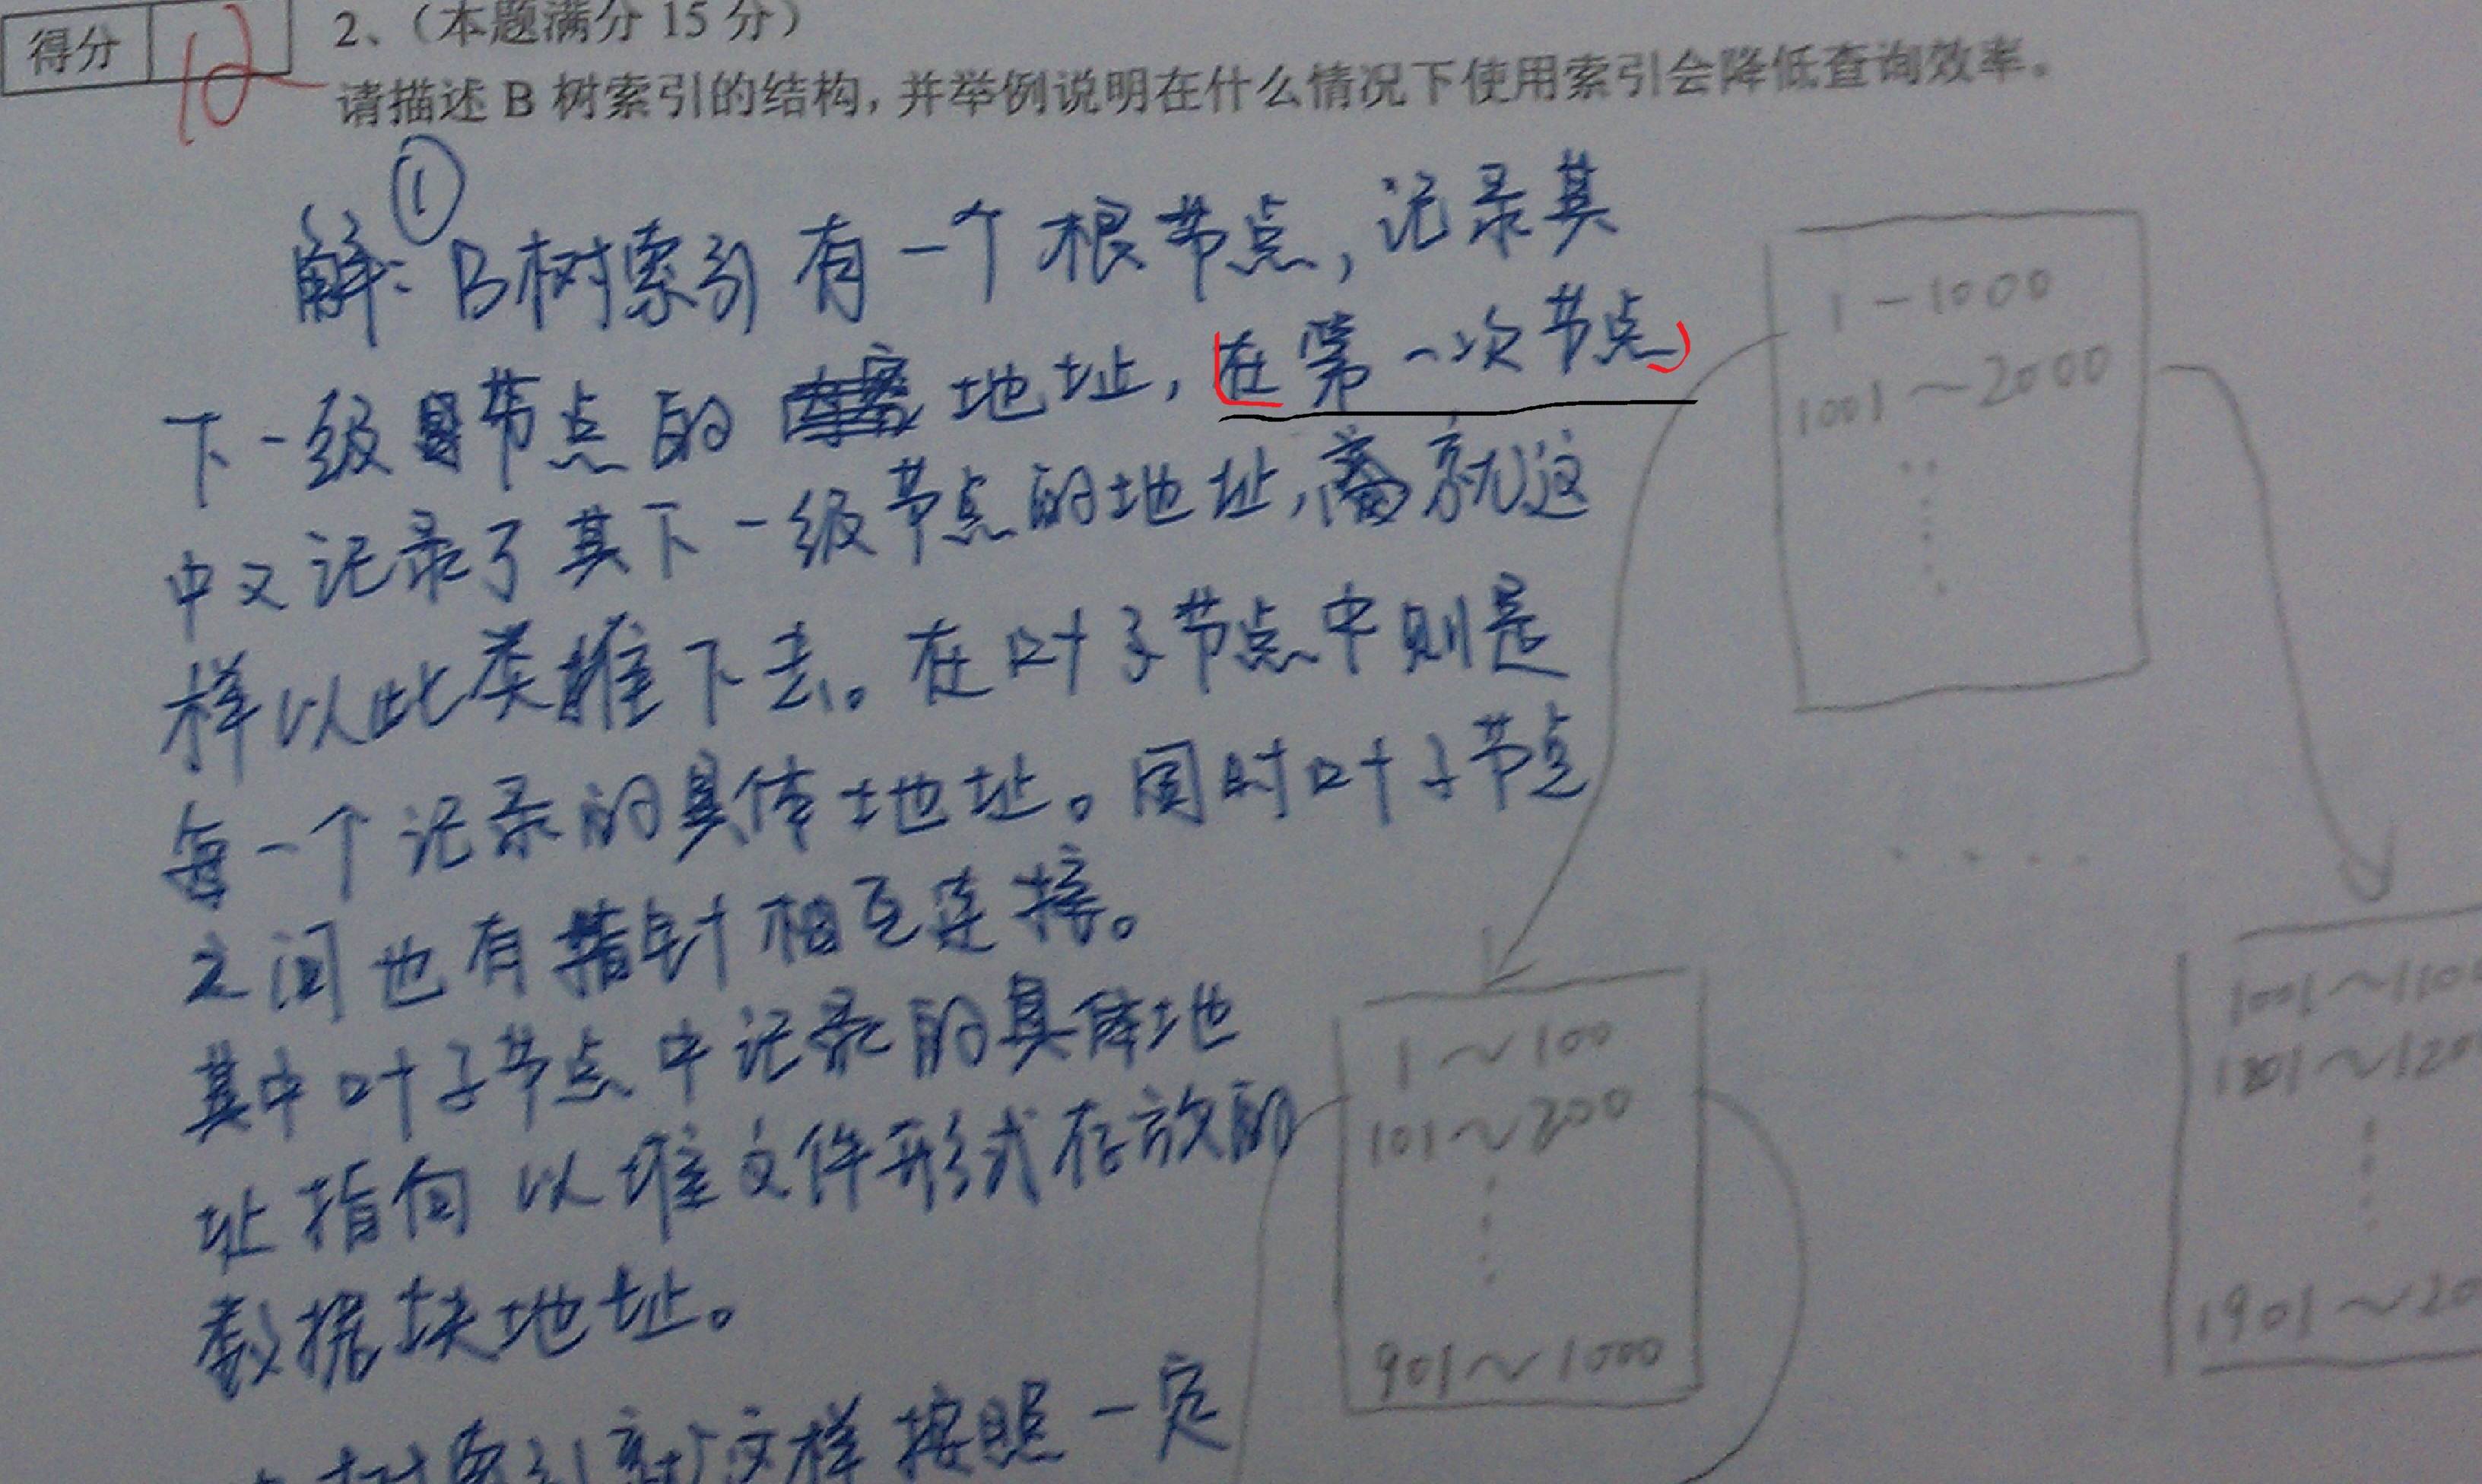 得分 12
2、（本题满分 15 分）
请描述 B 树索引的结构，并举例说明在什么情况下使用索引会降低查询效率。
①
解：B树索引有一个根节点，记录其
下一级节点的地址，在第一次节点
中又记录了其下一级节点的地址，就这
样以此类推下去。在叶子节点中则是
每一个记录的具体地址。同时叶子节点
之间也有指针相互连接。
其中叶子节点中记录的具体地
址指向以堆文件形式存放的
数据块地址。
树索引就这样按照一定
1-1000
1001~2000
1~100
101~200
901~1000
1001~1100
1101~120
1901~20